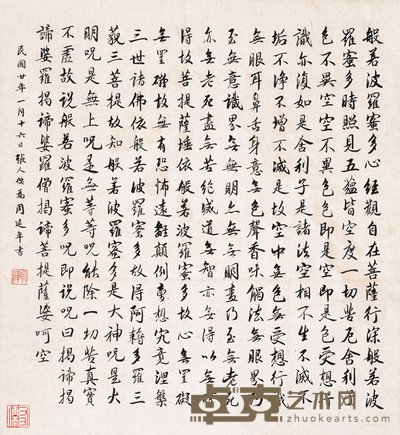 般若波羅蜜多心經觀自在菩薩行深般若波
羅蜜多時照見五蘊皆空度一切苦厄舍利子
色不異空空不異色色即是空空即是色受想行
識亦復如是舍利子是諸法空相不生不滅不
垢不淨不增不減是故空中無色無受想行識
無眼耳鼻舌身意無色聲香味觸法無眼界乃
至無意識界無無明亦無無明盡乃至無老死
亦無老死盡無苦集滅道無智亦無得以無所
得故菩提薩埵依般若波羅蜜多故心無罣礙
無罣礙故無有恐怖遠離顛倒夢想究竟涅槃
三世諸佛依般若波羅蜜多故得阿耨多羅三
藐三菩提故知般若波羅蜜多是大神呪是大
明呪是無上呪是無等等呪能除一切苦真實
不虛故說般若波羅蜜多呪即說呪曰揭諦揭
諦婆羅揭諦婆羅僧揭諦菩提薩婆呵 空
民國廿年一月十六日張人傑為周延年書
艺术网
zhuokearts.com